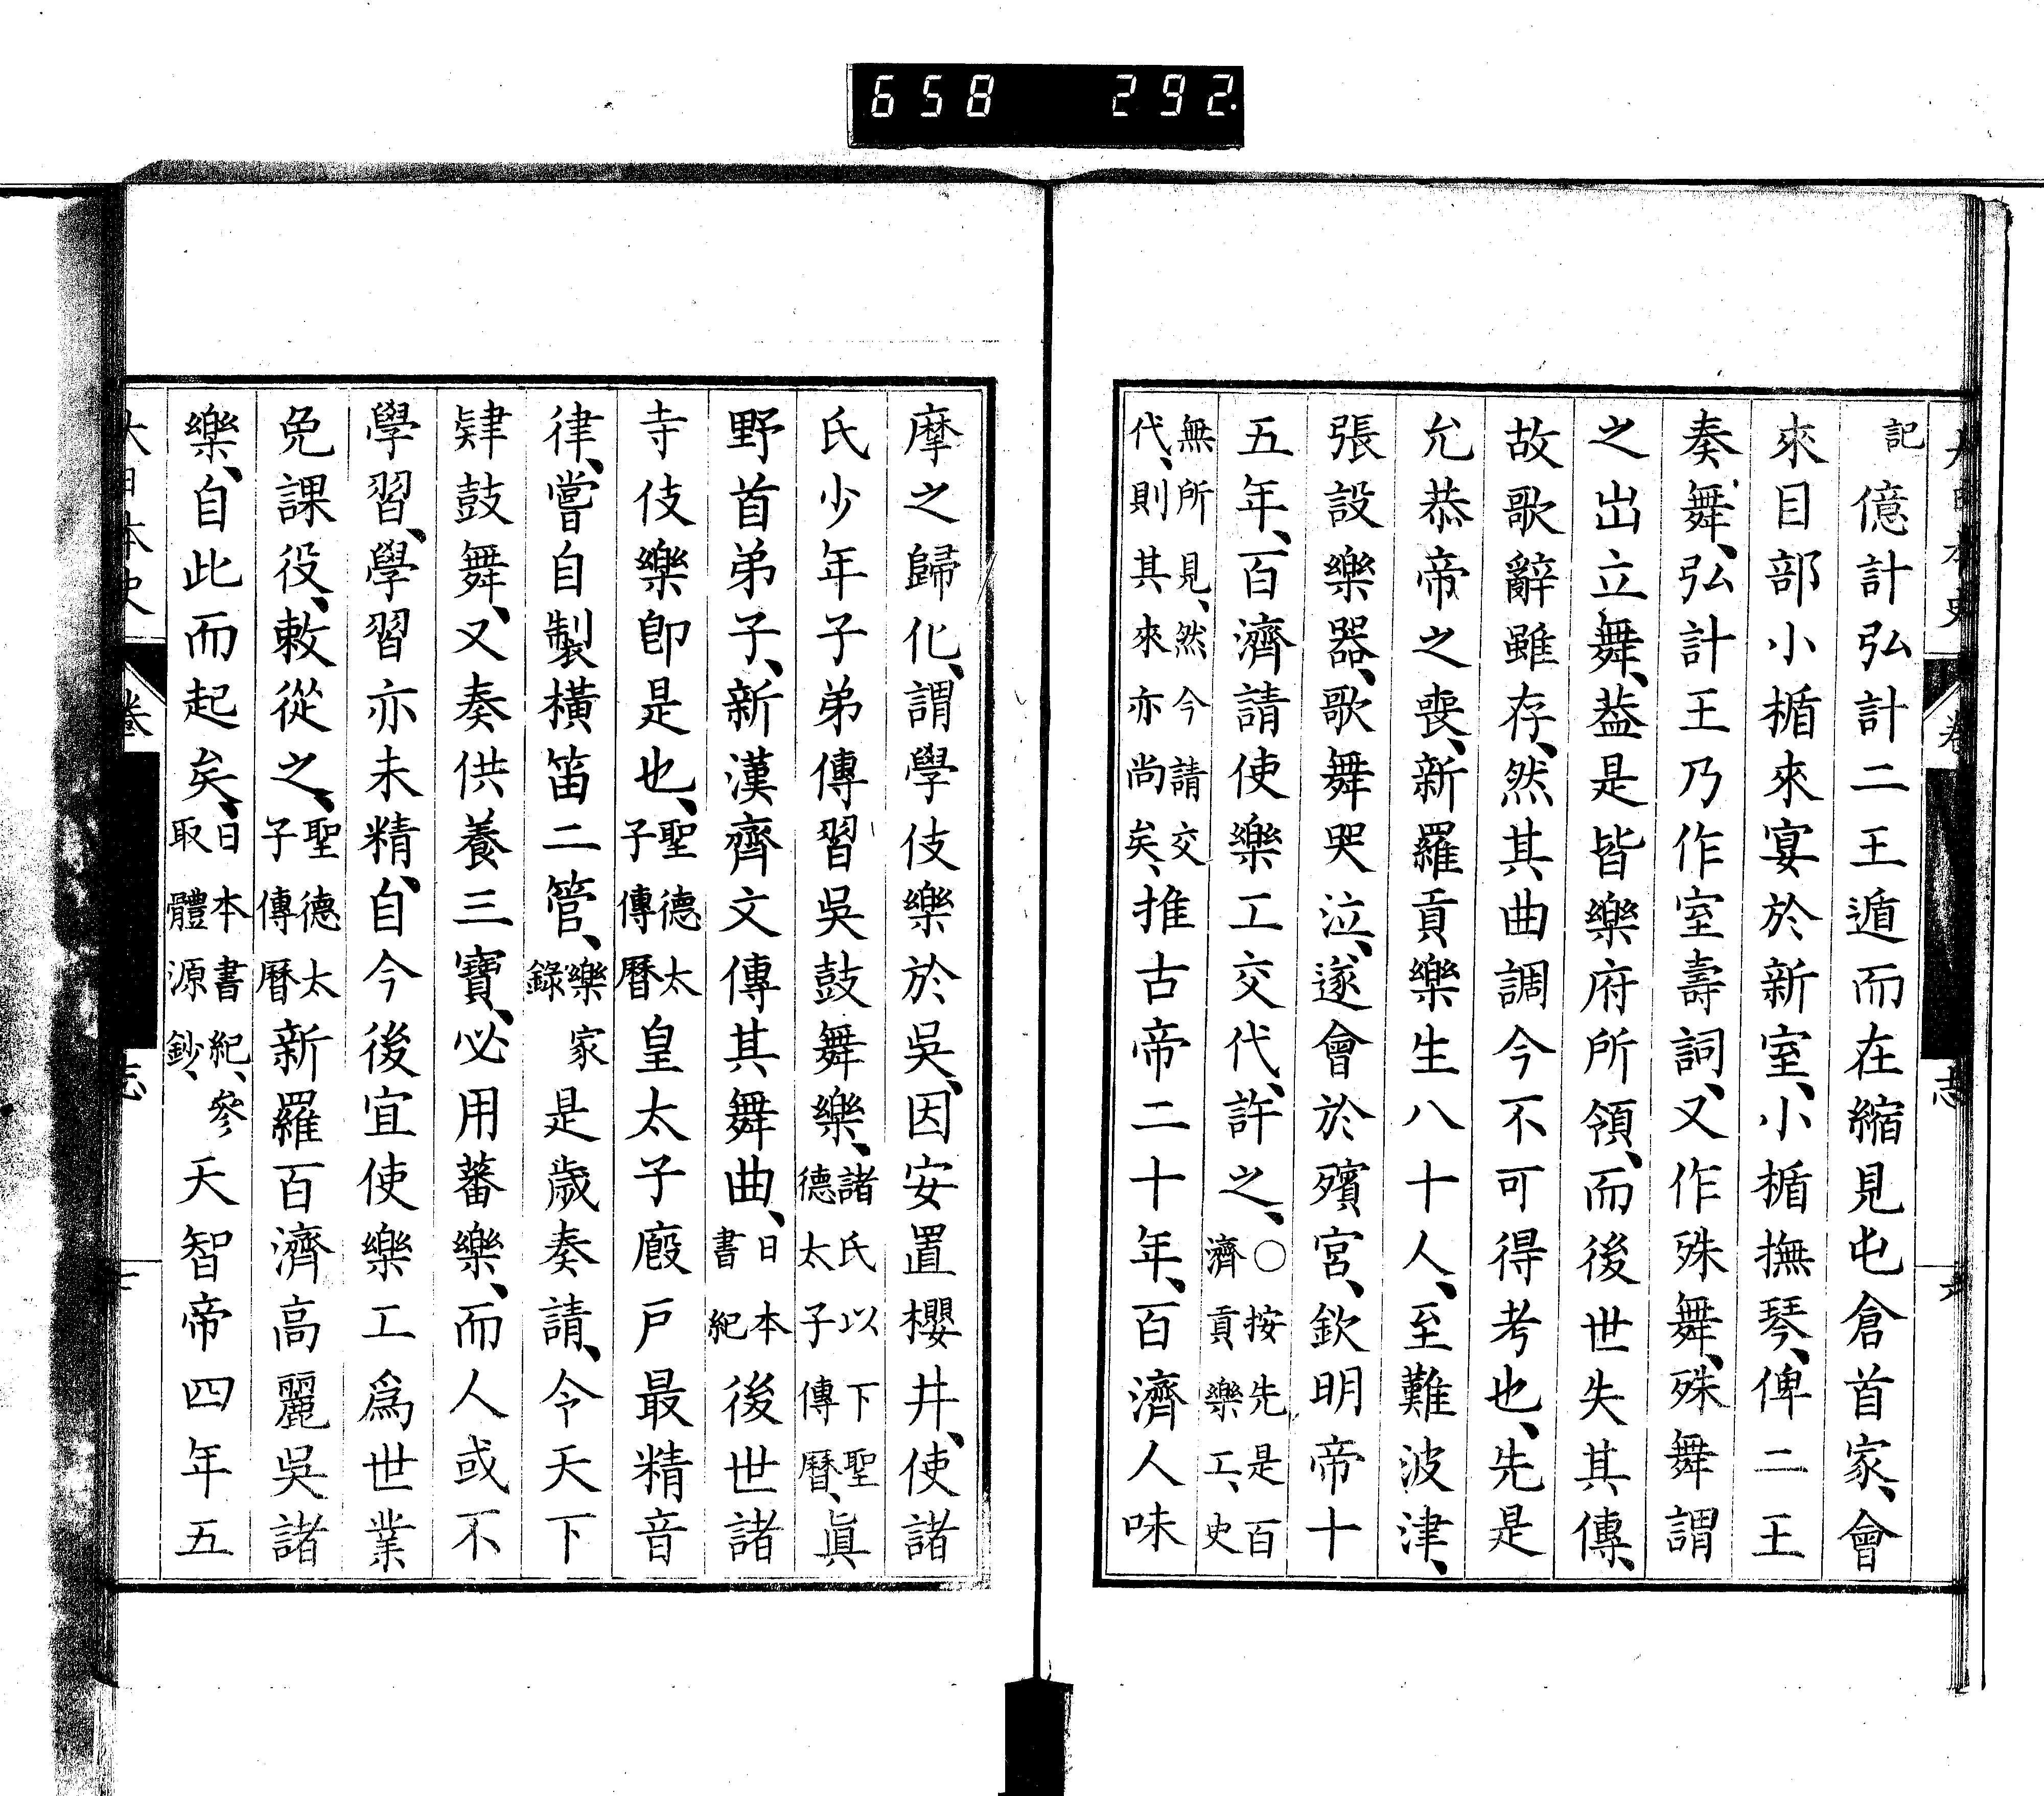 658 292
記億計弘計二王遁而在縮見屯倉首家、會
來目部小楯來宴於新室、小楯撫琴、俾二王
奏舞、弘計王乃作室壽詞、又作殊舞、殊舞謂
之出立舞、葢是皆樂府所領、而後世失其傳、
故歌辭雖存、然其曲調今不可得考也、先是
允恭帝之喪、新羅貢樂生八十人、至難波津、
張設樂器、歌舞哭泣、遂會於殯宮、欽明帝十
五年、百濟請使樂工交代、許之、○按先是百濟貢樂工、史
無所見、然今請交代、則其來亦尚矣、推古帝二十年、百濟人味
摩之歸化、謂學伎樂於吳、因安置櫻井、使諸
氏少年子弟傳習吳鼓舞樂、諸氏以下聖德太子傳曆、眞
野首弟子、新漢齊文傳其舞曲、日本書紀後世諸
寺伎樂卽是也、聖德太子傳曆皇太子廐戸最精音
律、嘗自製橫笛二管、樂家錄是歲奏請、令天下
肄鼓舞、又奏供養三寶、必用蕃樂、而人或不
學習、學習亦未精、自今後宜使樂工爲世業
免課役、敕從之、聖德太子傳曆新羅百濟高麗吳諸
樂、自此而起矣、日本書紀、參取體源鈔、天智帝四年五
大日本史 卷 志